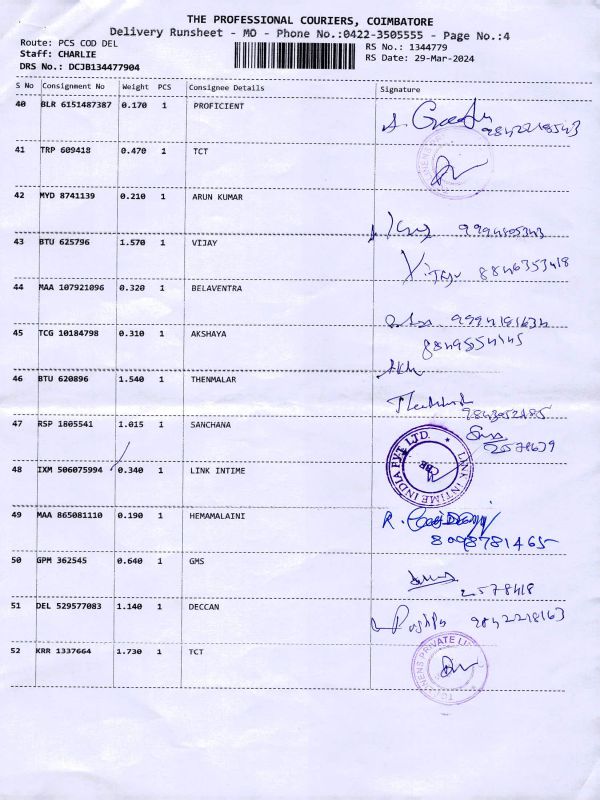 THE PROFESSIONAL COURIERS, COIMBATORE
Delivery Runsheet - MO - Phone No.:0422-3505555 - Page No.:4
Route: PCS COD DEL
RS No.: 1344779
Staff: CHARLIE
RS Date: 29-Mar-2024
DRS No.: DCJB134477904
S No Consignment No Weight PCS Consignee Details Signature
40 BLR 6151487387 0.170 1 PROFICIENT
9842218543
41 TRP 609418 0.470 1 TCT
42 MYD 8741139 0.210 1 ARUN KUMAR
43 BTU 625796 1.570 1 VIJAY
8846353418
44 MAA 107921096 0.320 1 BELAVENTRA
45 TCG 10184798 0.310 1 AKSHAYA
46 BTU 620896 1.540 1 THENMALAR
47 RSP 1805541 1.015 1 SANCHANA
LINK INTIME INDIA PVT. LTD.
CBE
48 IXM 506075994 0.340 1 LINK INTIME
49 MAA 865081110 0.190 1 HEMAMALAINI
R.
8098781465
50 GPM 362545 0.640 1 GMS
2578418
51 DEL 529577083 1.140 1 DECCAN
Pushpa 9842218163
52 KRR 1337664 1.730 1 TCT
PRIVATE